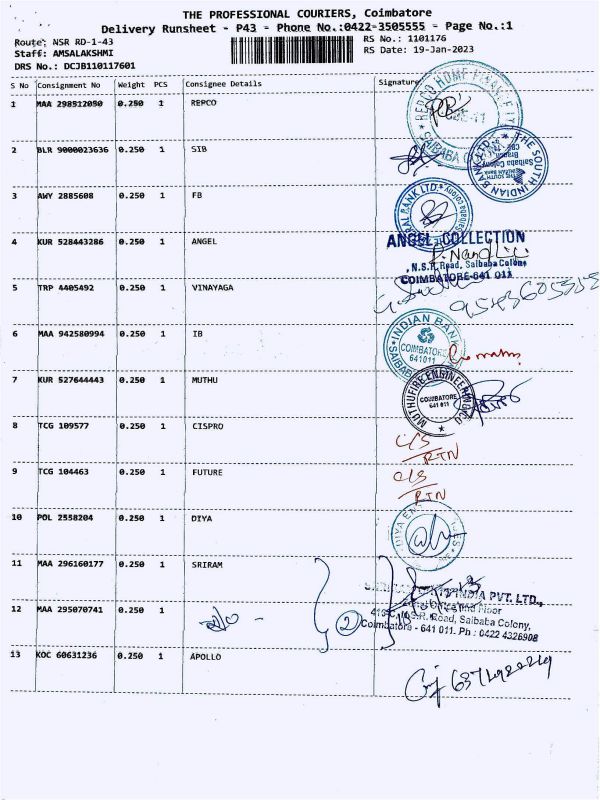 THE PROFESSIONAL COURIERS, Coimbatore
Delivery Runsheet - P43 - Phone No.:0422-3505555 - Page No.:1
Route: NSR RD-1-43
RS No.: 1101176
Staff: AMSALAKSHMI
RS Date: 19-Jan-2023
DRS No.: DCJB110117601
S No Consignment No Weight PCS Consignee Details Signature
1 MAA 298512050 0.250 1 REPCO
REPCO HOME FINANCE
SAIBABA
2 BLR 9000023636 0.250 1 SIB
THE SOUTH INDIAN BANK
Saibaba Colony
3 AWY 2885608 0.250 1 FB
4 KUR 528443286 0.250 1 ANGEL
ANGEL COLLECTION
N.S.R. Road, Saibaba Colony
COIMBATORE-641 011
5 TRP 4405492 0.250 1 VINAYAGA
6 MAA 942580994 0.250 1 IB
INDIAN BANK
COIMBATORE
641011
SAIBABA
7 KUR 527644443 0.250 1 MUTHU
MUTHUFIRE ENGINEERING CO
COIMBATORE
641 011
8 TCG 109577 0.250 1 CISPRO
C/S
RTN
9 TCG 104463 0.250 1 FUTURE
C/S
RTN
10 POL 2558204 0.250 1 DIYA
DIYA
11 MAA 296160177 0.250 1 SRIRAM
INDIA PVT. LTD.,
12 MAA 295070741 0.250 1
2
N.S.R. Road, Saibaba Colony,
Coimbatore - 641 011. Ph : 0422 4326908
13 KOC 60631236 0.250 1 APOLLO